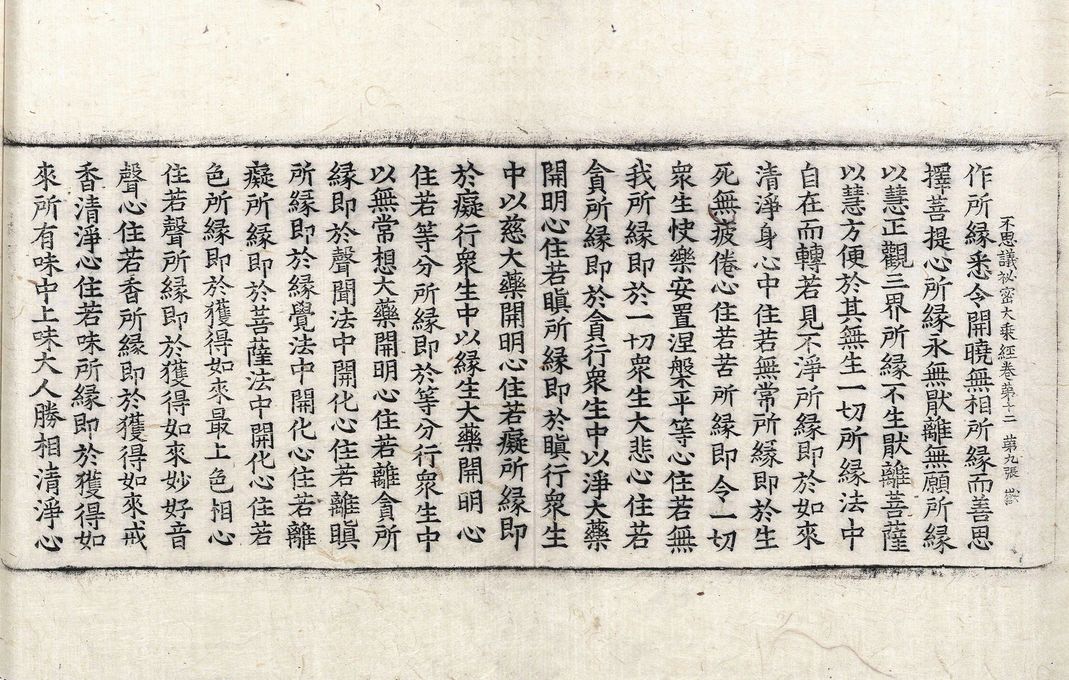 不思議祕密大乘經卷第十二 第九張
作所緣悉令開曉無相所緣而善思
擇菩提心所緣永無猒離無願所緣
以慧正觀三界所緣不生猒離菩薩
以慧方便於其無生一切所緣法中
自在而轉若見不淨所緣即於如來
清淨身心中住若無常所緣即於生
死無疲倦心住若苦所緣即令一切
衆生快樂安置涅槃平等心住若無
我所緣即於一切衆生大悲心住若
貪所緣即於貪行衆生中以淨大藥
開明心住若瞋所緣即於瞋行衆生
中以慈大藥開明心住若癡所緣即
於癡行衆生中以緣生大藥開明心
住若等分所緣即於等分行衆生中
以無常想大藥開明心住若離貪所
緣即於聲聞法中開化心住若離瞋
所緣即於緣覺法中開化心住若離
癡所緣即於菩薩法中開化心住若
色所緣即於獲得如來最上色相心
住若聲所緣即於獲得如來妙好音
聲心住若香所緣即於獲得如來戒
香清淨心住若味所緣即於獲得如
來所有味中上味大人勝相清淨心